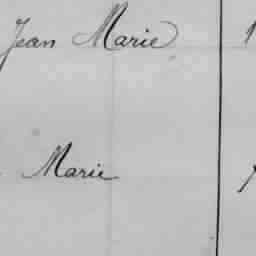 Jean Marie
Marie